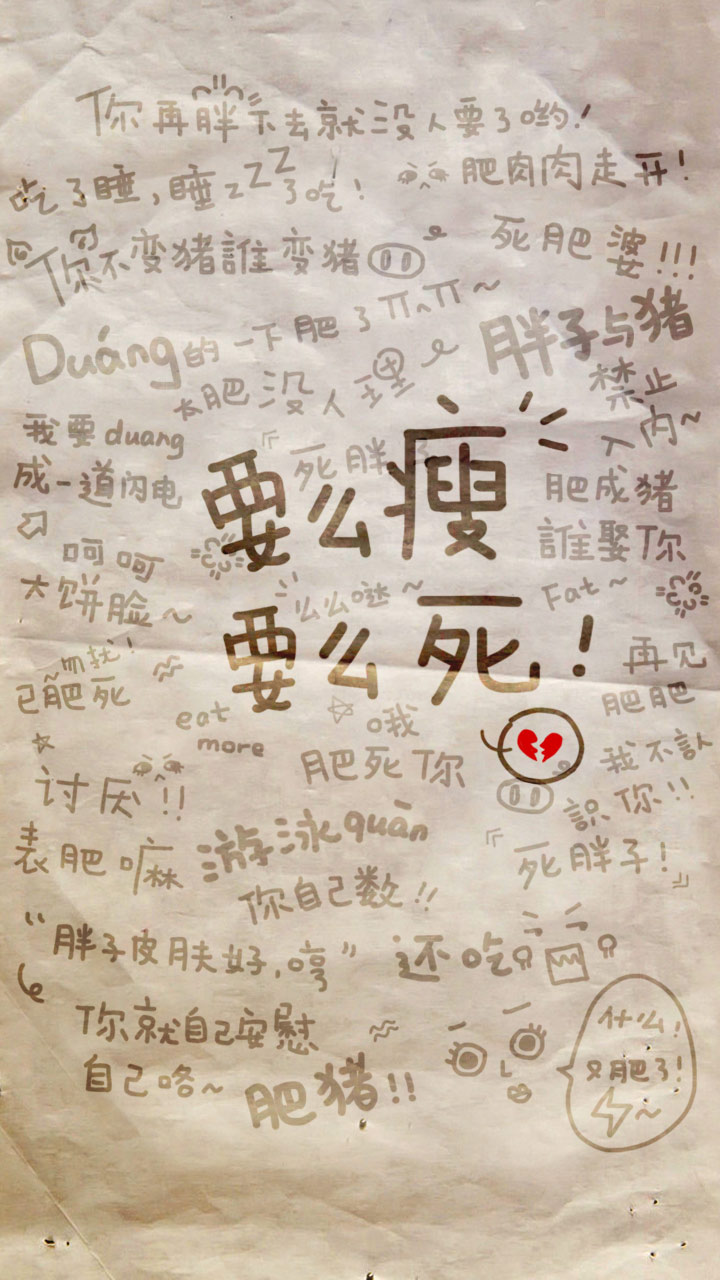 你再胖下去就没人要了哟!
吃了睡,睡zzZZ了吃!
肥肉肉走开!
你不变猪誰变猪
死肥婆!!!
Duáng的一下肥了πヘπ~
胖子与猪
禁止
入内~
太肥没人理
我要duang
成一道闪电
死胖子
要么瘦
肥成猪
誰娶你
呵呵
大饼脸~
么么哒~
Fat~
要么死!
再见
肥肥
已肥死
勿扰!
eat
more
哦我
肥死你
我不認
識你!!
讨厌!!
表肥嘛
游泳quān
你自己数!!
死胖子!
“胖子皮肤好,哼”
还吃
你就自己安慰
自己咯~
肥猪!!
什么!
又肥了!
~